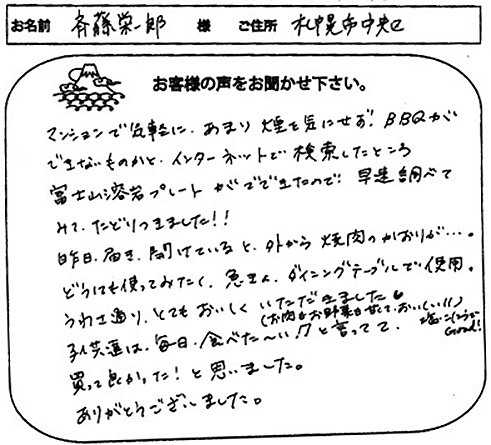 お名前 斉藤栄一郎 様 ご住所 札幌市中央区
お客様の声をお聞かせ下さい。
マンションで気軽に、あまり煙を気にせず、BBQが
できないものかと、インターネットで検索したところ
富士山溶岩プレートがでてきたので、早速調べて
みて、たどりつきました!!
昨日、届き、開けていると、外から焼肉のかおりが…。
どうにも使ってみたく、急きょ、ダイニングテーブルで使用。
うわさ通り、とてもおいしくいただきました
(お肉もお野菜も甘くて、おいしい!!)
塩こしょうで
Good!
子供達は、毎日、食べた〜い♪と言ってて、
買って良かった!と思いました。
ありがとうございました。